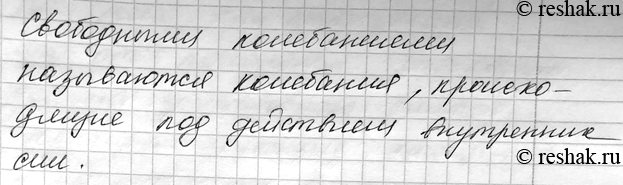 reshak.ru
Свободными колебаниями
называются колебания, происхо-
дящие под действием внутренних
сил.
reshak.ru